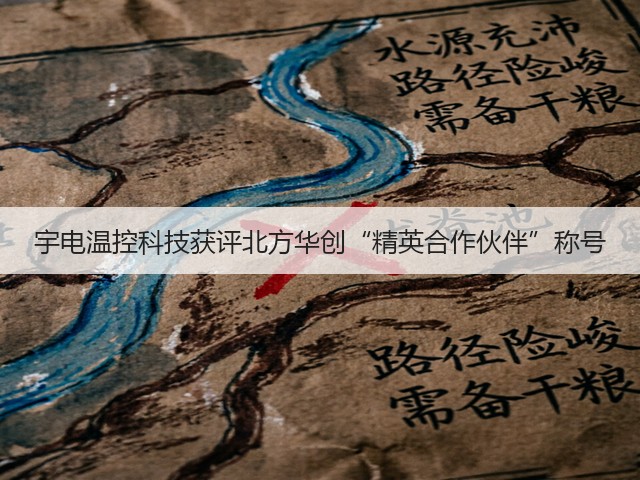 水源充沛
路径险峻
需备干粮
宇电温控科技获评北方华创“精英合作伙伴”称号
路径险峻
需备干粮